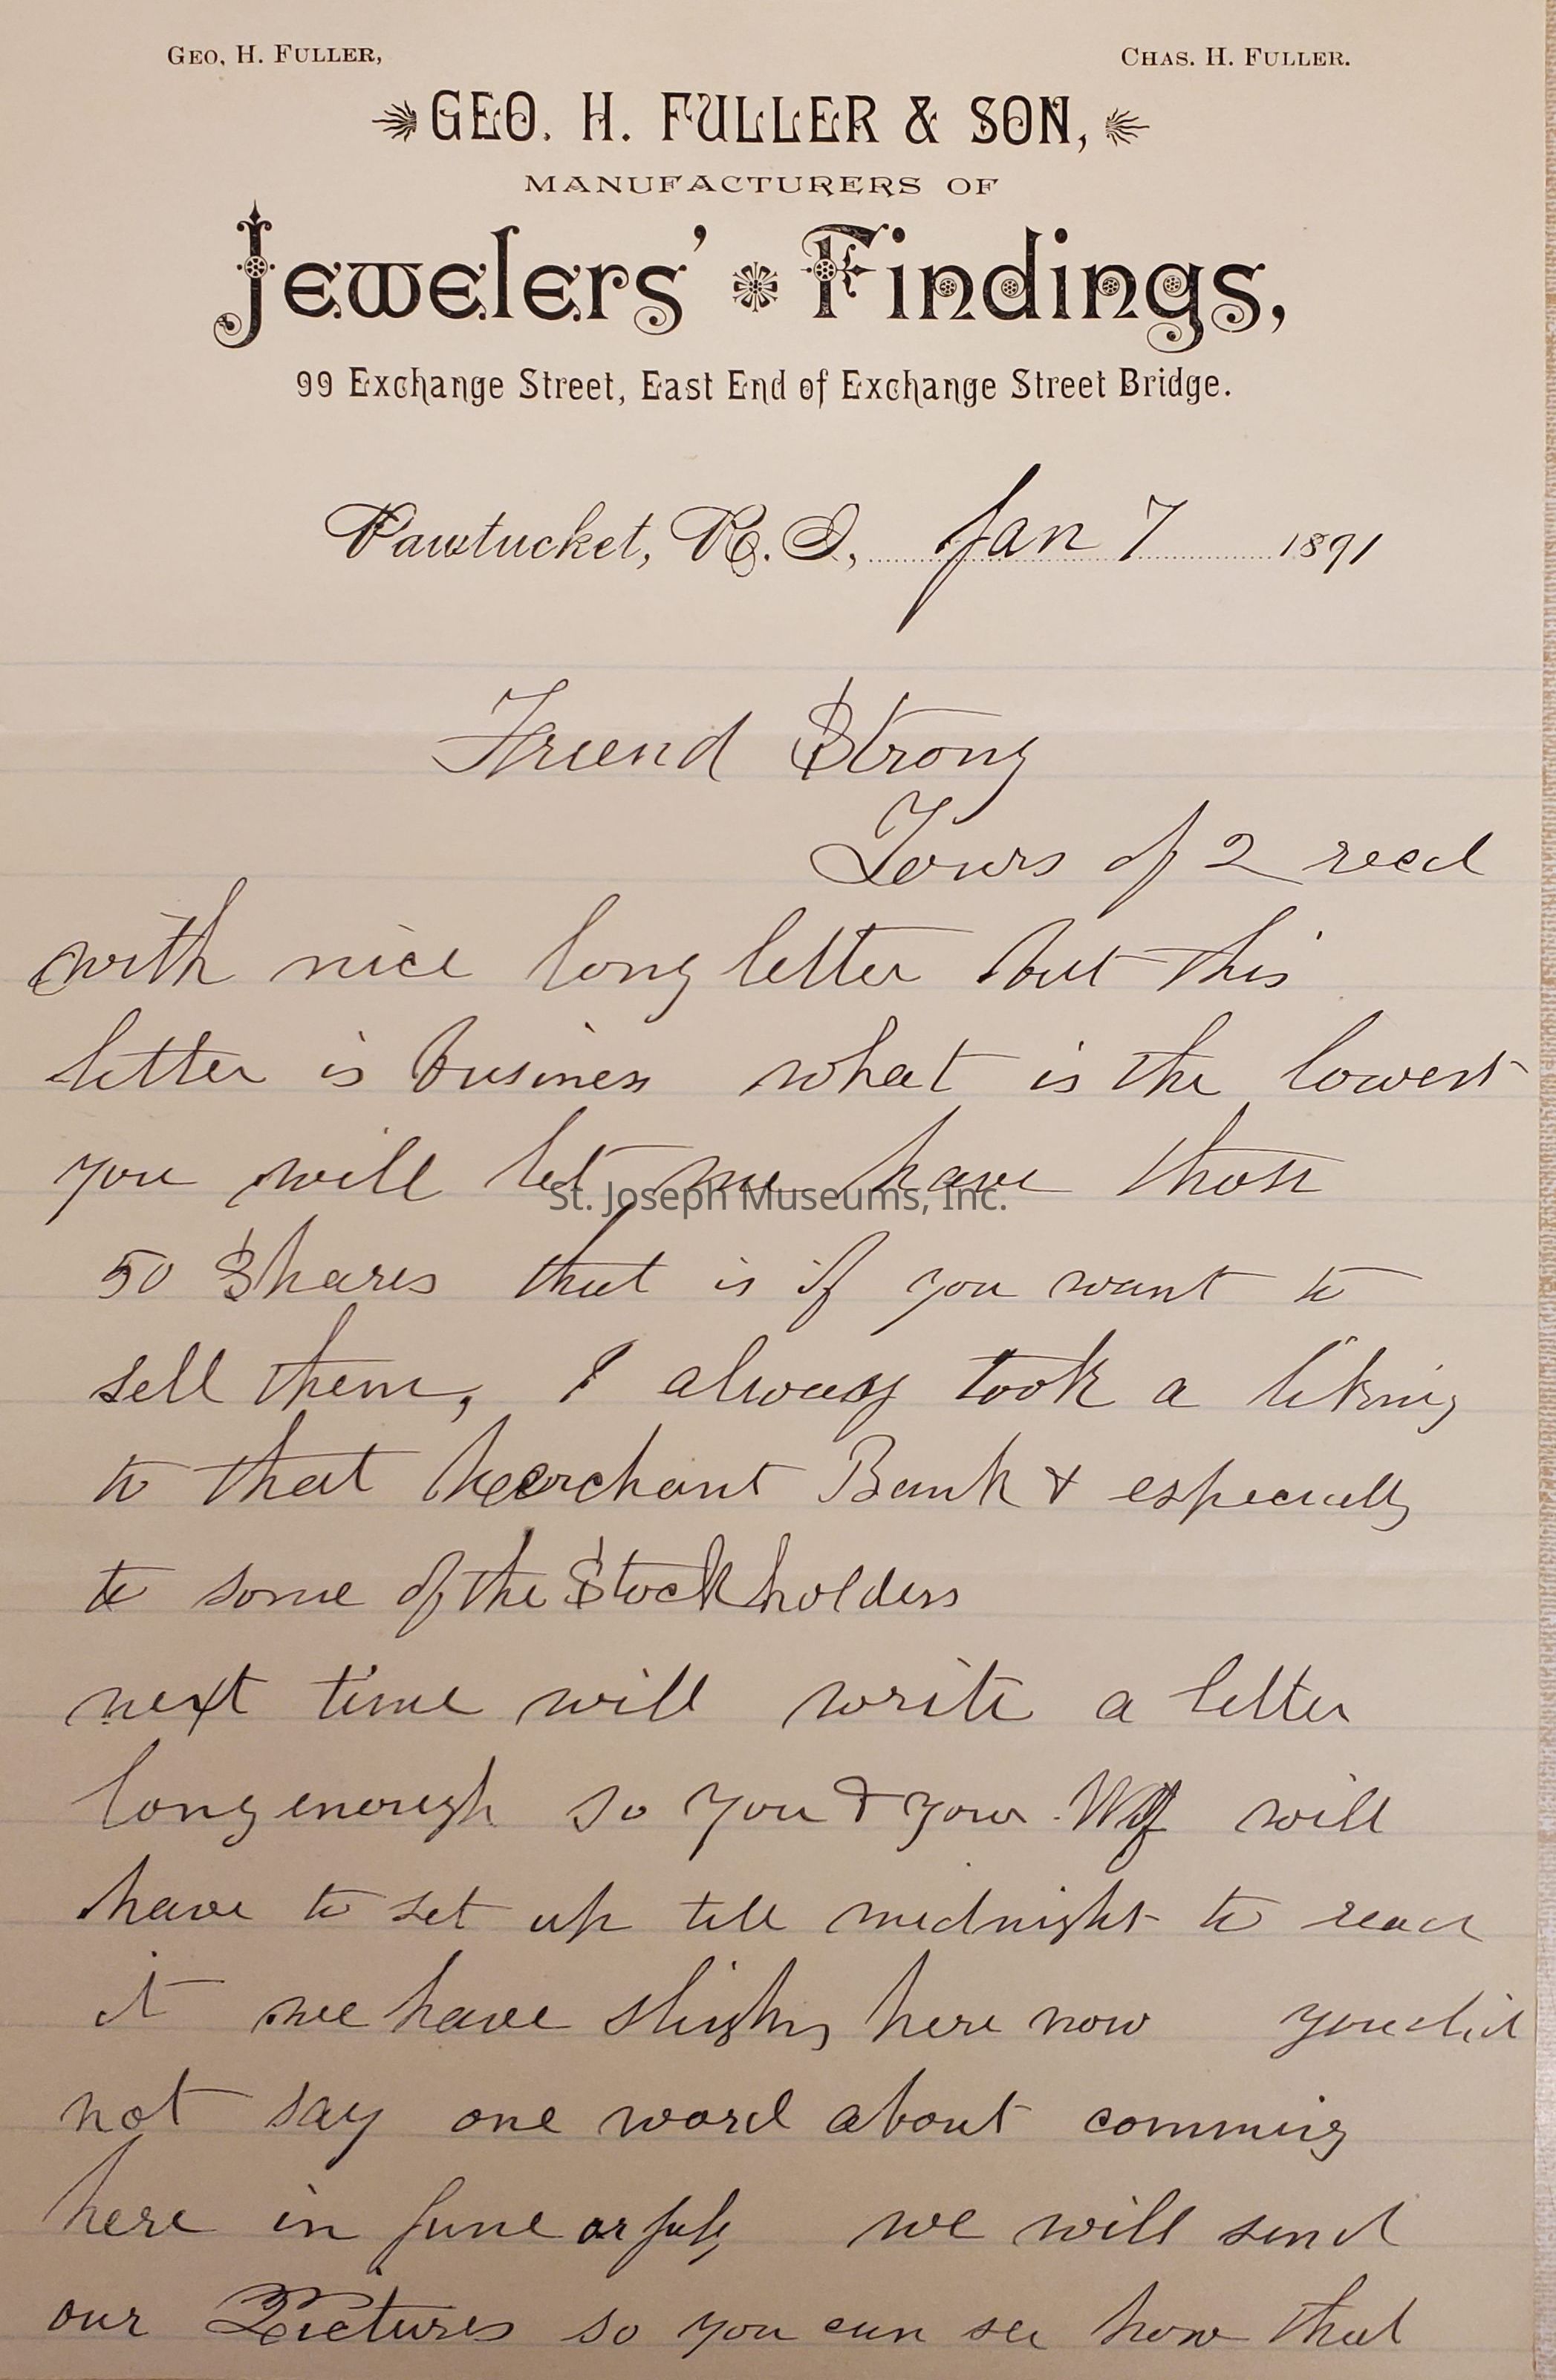 GEO. H. FULLER, CHAS. H. FULLER.
GEO. H. FULLER & SON,
MANUFACTURERS OF
Jewelers' Findings,
99 Exchange Street, East End of Exchange Street Bridge.
Pawtucket, R. I., Jan 7 1891
Friend Strong
Yours of 2 recd
with nice long letter but this
letter is business what is the lowest
you will let me have those
St. Joseph Museums, Inc.
50 Shares that is if you want to
sell them, I always took a liking
to that Merchant Bank & especially
to some of the Stockholders
next time will write a letter
long enough so you & your Wf will
have to set up till midnight to read
it we have slighing here now you did
not say one word about comming
here in June or July we will send
our Pictures so you can see how that